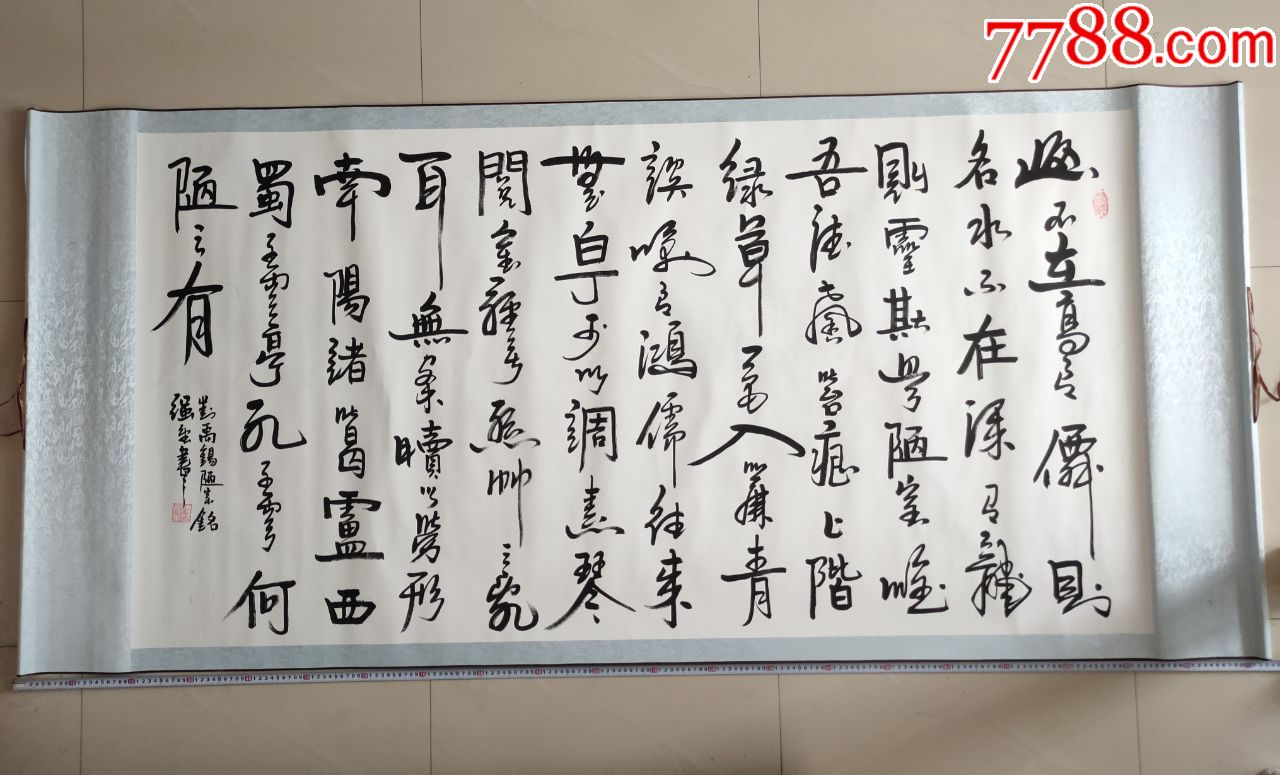 7788.com
山不在高有僊則
名水不在深有龍
則靈斯是陋室唯
吾德馨苔痕上階
綠草色入簾青
談笑有鴻儒往來
無白丁可以調素琴
閱金經無絲竹之亂
耳無案牘之勞形
南陽諸葛廬西
蜀子雲亭孔子雲何
陋之有
劉禹錫陋室銘
强書